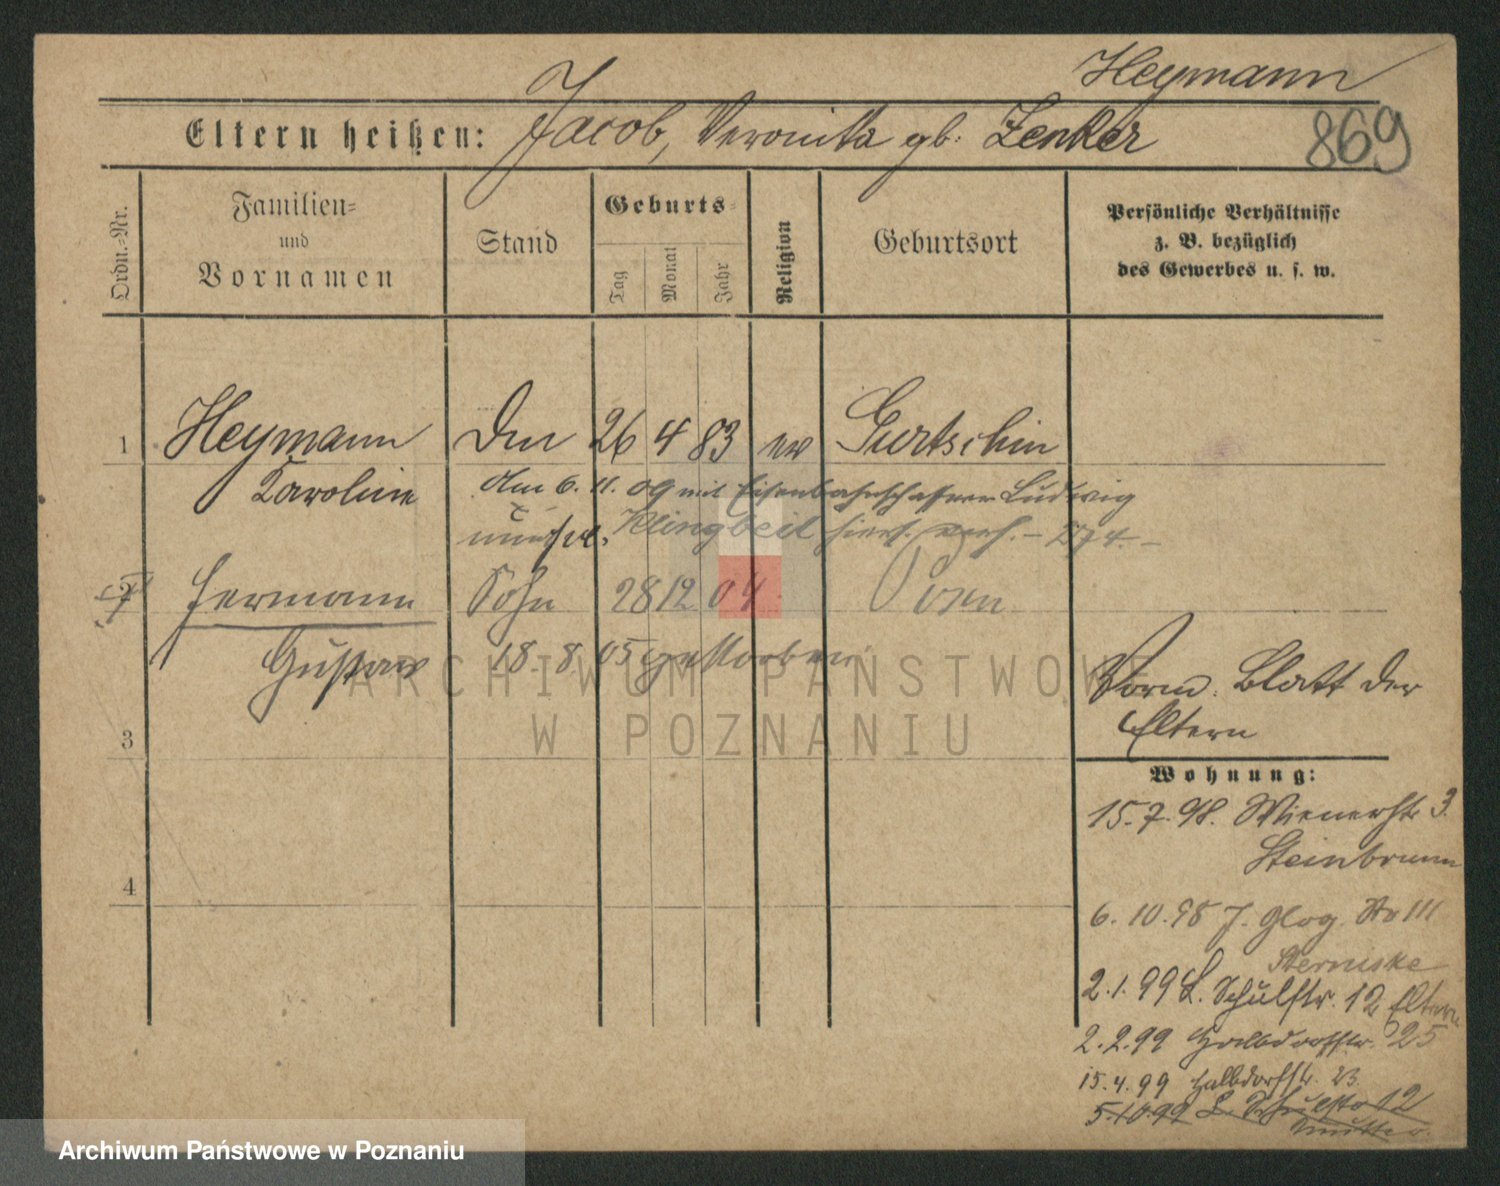 Heymann
Eltern heißen: Jacob, Veronika gb. Zenker
869
Ordn.-Nr.
Familien-
und
Vornamen
Stand
Geburts-
Tag
Monat
Jahr
Religion
Geburtsort
Persönliche Verhältnisse
z. B. bezüglich
des Gewerbes u. s. w.
1 Heymann 26 4 83 ev Gurtschin
Karoline Am 6. 11. 09 mit Eisenbahnschaffner Ludwig
unehel. Klingbeil hiers. verh. - 274. -
2 Hermann Sohn 28 12 04 Posen
Gustav 18. 8. 05 gestorben
3
4
Vorm. Blatt der
Eltern
Wohnung:
15. 7. 98. Wienerstr 3.
Steinbrunn
6. 10. 98 Glog. Str 111
2. 1. 99 L. Schulstr. 12 Eltern
2. 2. 99 Halbdorfstr. 25
15. 4. 99 Halbdorfstr. 23
5. 10. 99 L. Schulstr 12
Mutter.
ARCHIWUM PAŃSTWOWE
W POZNANIU
Archiwum Państwowe w Poznaniu